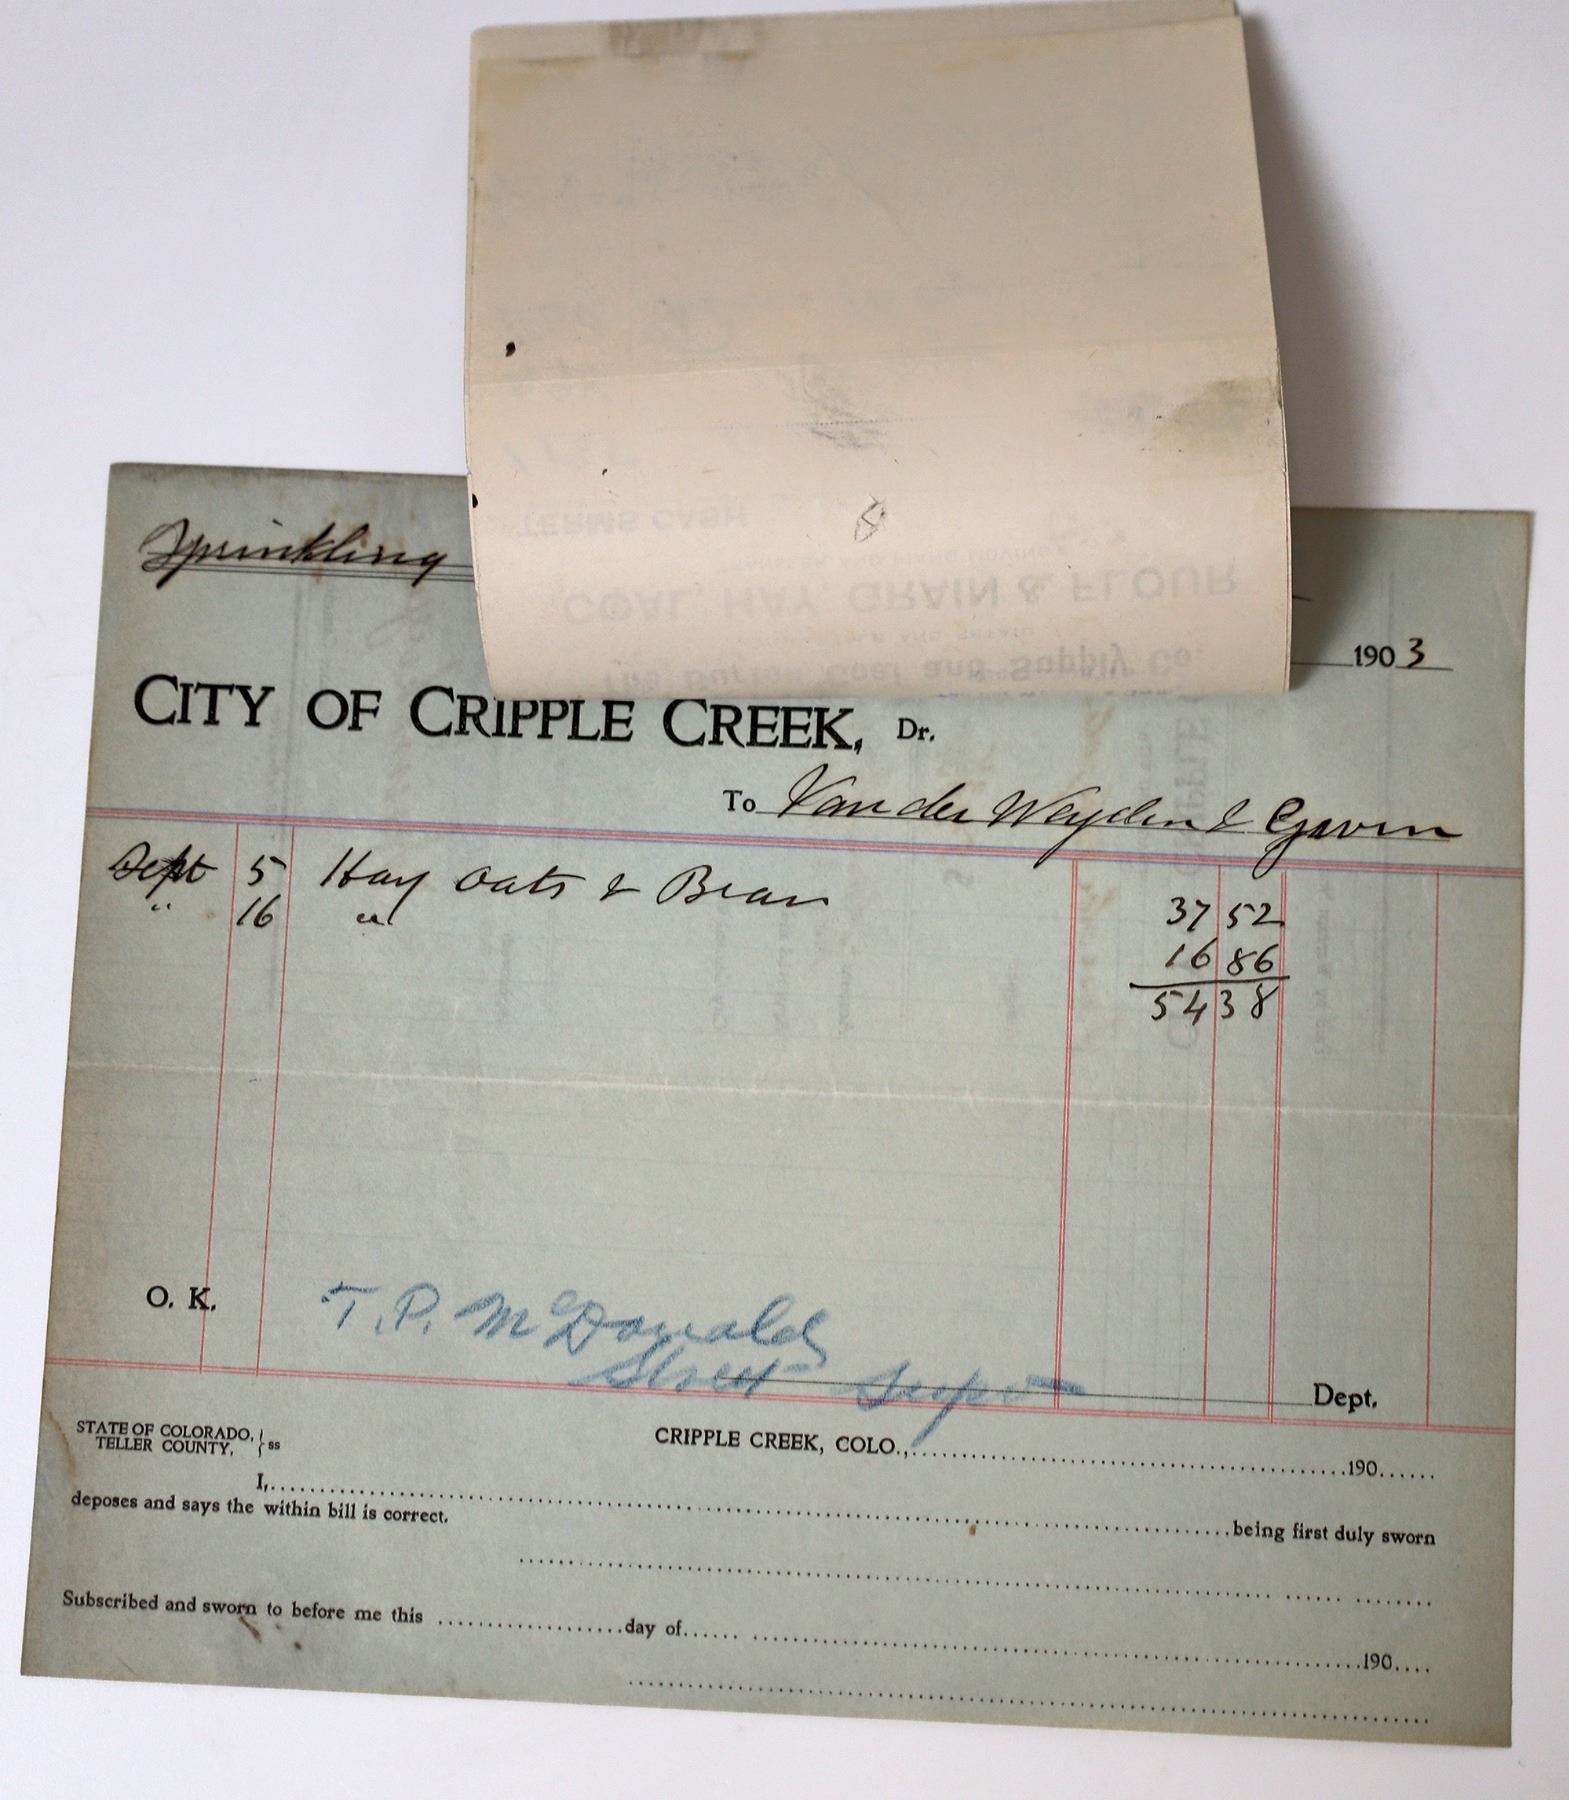 Sprinkling
1903
CITY OF CRIPPLE CREEK, Dr.
To Van der Weyden &
Sept 5 Hay Oats & Bran 37 52
" 16 " 16 86
54 38
O. K. T. P. McDonald
Street Supt Dept.
STATE OF COLORADO, } ss
TELLER COUNTY.
CRIPPLE CREEK, COLO., 190
I, being first duly sworn
deposes and says the within bill is correct.
Subscribed and sworn to before me this day of 190
TERMS CASH
COAL, HAY, GRAIN & FLOUR
Coal and Supply Co.